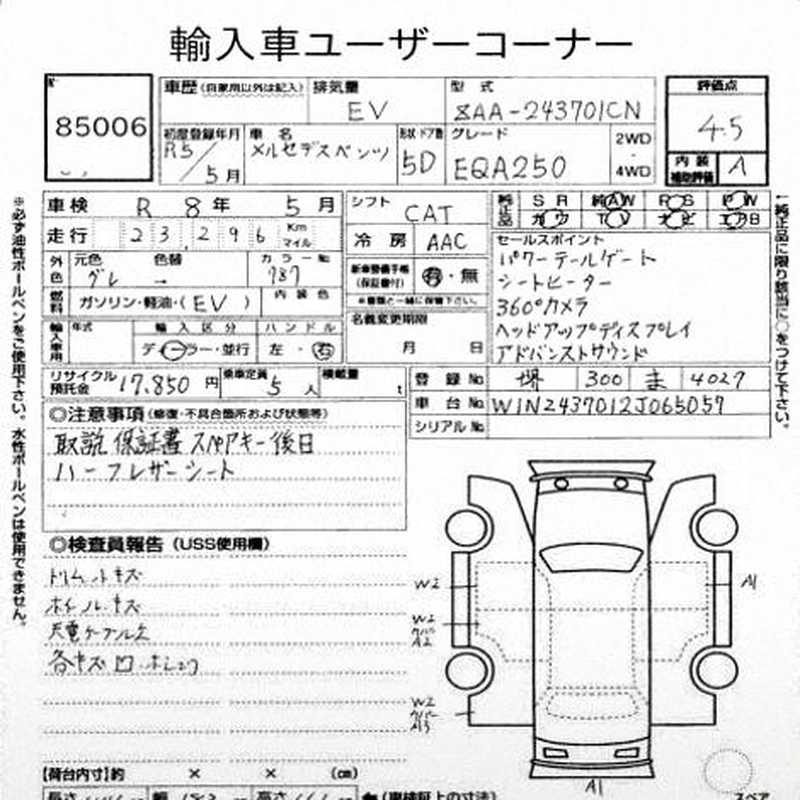 輸入車ユーザーコーナー
85006
車歴 (自家用以外は記入)
排気量 EV
型式 ZAA-243701CN
評価点 4.5
初度登録年月 R5/5月
車名 メルセデスベンツ
形状・ドア数 5D
グレード EQA250
2WD・4WD
内装補助評価 A
車検 R 8年 5月
走行 23,296 Km マイル
外色 元色 グレー → 色替
カラーNo 787
燃料 ガソリン・軽油・(EV)
内装色
輸入車用 年式
輸入区分 ディーラー・並行
ハンドル 左・右
シフト CAT
冷房 AAC
新車整備手帳 (保証書付) 有・無
※書類と一緒に保管下さい。
名義変更期限
月 日
純正品 SR 純AW RS PW
カワ TV ナビ エアB
セールスポイント
パワーテールゲート
シートヒーター
360°カメラ
ヘッドアップディスプレイ
アドバンストサウンド
リサイクル預託金 17,850円
乗車定員 5人
積載量 t
登録No 堺 300 ま 4027
車台No W1N2437012J065057
シリアルNo
◎注意事項 (修復・不具合箇所および状態等)
取説 保証書 スペアキー後日
ハーフレザーシート
◎検査員報告 (USS使用欄)
トリムキズ
ホイールキズ
充電ケーブル欠
各キズ凹
W2
W2
カバー
A2
W2
カバー
A3
A1
A1
【荷台内寸】約 × × (cm)
長さ 幅 高さ (車検証上の寸法)
スペア
※必ず油性ボールペンをご使用下さい。水性ボールペンは使用できません。
↑純正品に限り該当に○をつけて下さい。